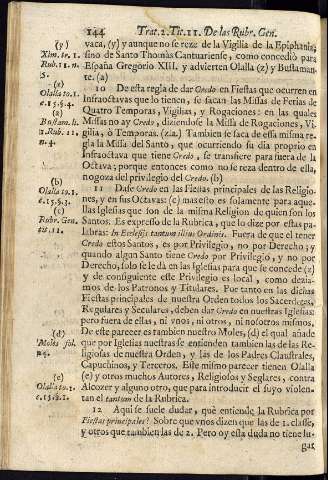 144 Trat. 2. Tit. 11. De las Rubr. Gen.
(y)
Xim. to. 1.
Rub. 11. n.
5.
(z)
Olalla to. 1.
c. 15. §. 4.
(a)
Bustam. li.
1. Rub. 11.
n. 4.
(b)
Olalla to. 1.
c. 15. §. 3.
(c)
Rubr. Gen.
tit. 11.
(d)
Moles fol.
(e)
Olalla to. 1.
c. 15. §. 1.
vaca, (y) y aunque no se reze de la Vigilia de la Epiphania;
sino de Santo Thomàs Cantuariense, como concediò para
España Gregorio XIII. y advierten Olalla (z) y Bustaman-
te. (a)
10 De esta regla de dar Credo en Fiestas que ocurren en
Infraoctavas que lo tienen, se sacan las Missas de Ferias de
Quatro Temporas, Vigilias, y Rogaciones: en las quales
Missas no ay Credo, diziendose la Missa de Rogaciones, Vi-
gilia, ò Temporas. (z.a.) Tambien se saca de essa misma re-
gla la Missa del Santo, que ocurriendo su dia proprio en
Infraoctava que tiene Credo, se transfiere para fuera de la
Octava; porque entonces como no se reza dentro de ella,
no goza del privilegio del Credo. (b)
11 Dase Credo en las Fiestas principales de las Religio-
nes, y en sus Octavas: (c) mas esto es solamente para aque-
llas Iglesias que son de la misma Religion de quien son los
Santos: Es expresso de la Rubrica, que lo dize por estas pa-
labras: In Ecclesijs tantum illius Ordinis. Fuera de que el tener
Credo estos Santos, es por Privilegio, no por Derecho; y
quando algun Santo tiene Credo por Privilegio, y no por
Derecho, solo se le dà en las Iglesias para que se concede (z)
y de consiguiente este Privilegio es local, como dezia-
mos de los Patronos y Titulares. Por tanto en las dichas
Fiestas principales de nuestra Orden todos los Sacerdotes,
Regulares y Seculares, deben dar Credo en nuestras Iglesias:
pero fuera de ellas, ni vnos, ni otros, ni nosotros mismos.
De este parecer es tambien nuestro Moles, (d) el qual añade
que por Iglesias nuestras se entienden tambien las de Re-
ligiosas de nuestra Orden, y las de los Padres Claustrales,
Capuchinos, y Terceros. Este mismo parecer tienen Olalla
(e) y otros muchos Autores, Religiosos y Seglares, contra
Alcozer y alguno otro, que para introducir el suyo violen-
tan el tantum de la Rubrica.
12 Aqui se suele dudar, què entiende la Rubrica por
Fiestas principales? Sobre que vnos dizen que las de 1. classe,
y otros que tambien las de 2. Pero oy essa duda no tiene lu-
gar